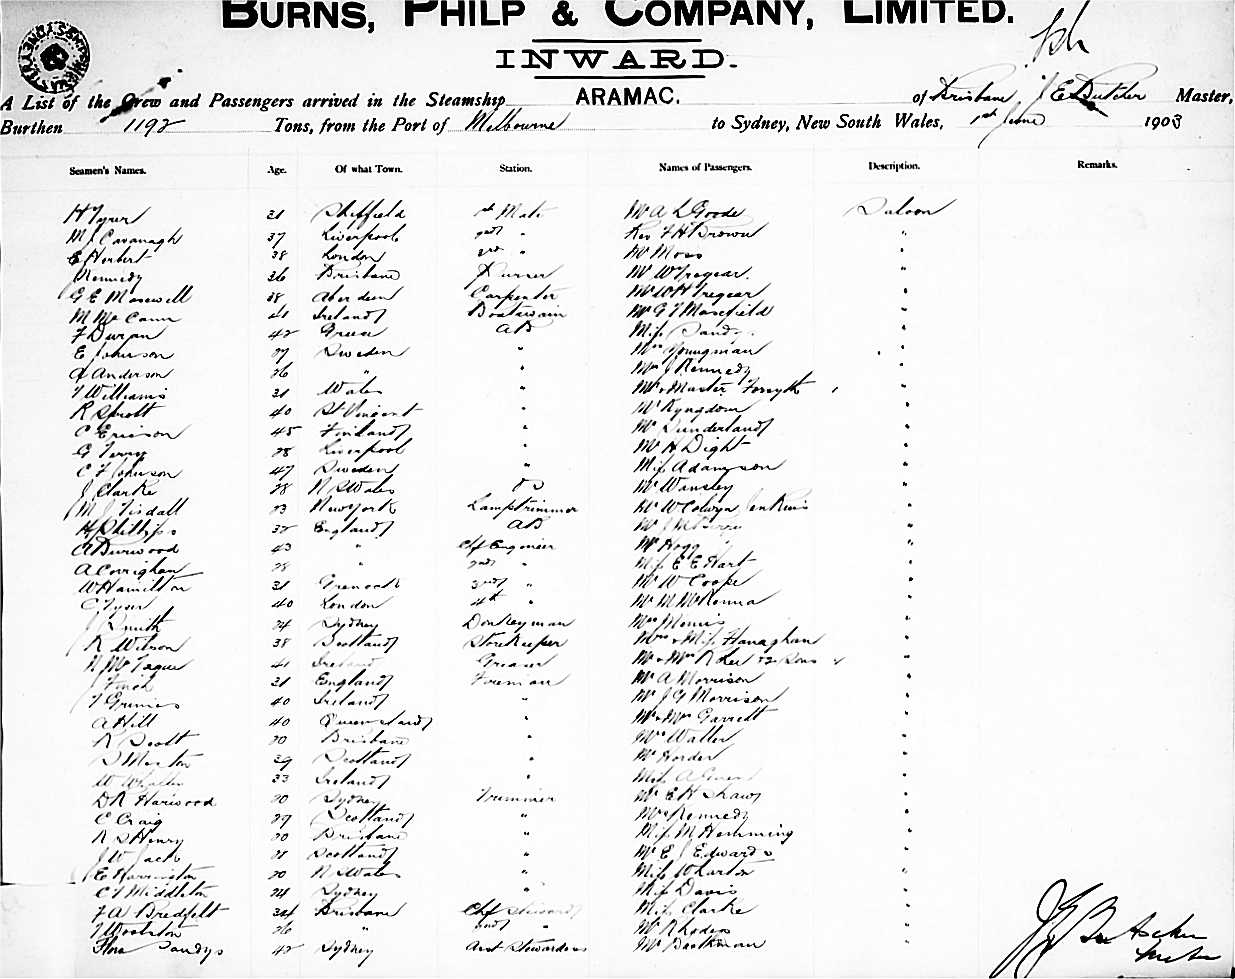 BURNS, PHILP & COMPANY, LIMITED.
INWARD.
A List of the Crew and Passengers arrived in the Steamship ARAMAC. of Brisbane J E Butcher Master,
Burthen 1192 Tons, from the Port of Melbourne to Sydney, New South Wales, 1st June 1903
Seamen's Names. Age. Of what Town. Station. Names of Passengers. Description. Remarks.
H Tyrer 31 Sheffield 1st Mate Mr A L Goode Saloon
M J Cavanagh 37 Liverpool 2nd " Rev F H Browne "
E Herbert 38 London 3rd " Mr Moss "
Kennedy 36 Brisbane Purser Mr W Tregear "
G E Maxwell 38 Aberdeen Carpenter Mr W H Tregear "
M McCann 41 Ireland Boatswain Mr G T Masefield "
F Duran 42 Greece AB Miss Sandy "
E Johnson 27 Sweden " Mrs Youngman "
A Anderson 26 " " Mrs J Kennedy "
T Williams 31 Wales " Mr & Master Forsyth "
R Sprott 40 St Vincent " Mr Kyngdom "
C Ericson 45 Finland " Mr Sunderland "
G Terry 28 Liverpool " Mr H Dight "
C F Johnson 47 Sweden " Miss Adamson "
J Clarke 28 N S Wales Mr Wansley "
M J Tisdall 23 New York Lamptrimmer Mr W Colwyn Jenkins "
H Phillips 32 England AB Mr J "
A Burwood 43 " Chf Engineer Mr Hogg "
A Corrighan 28 " 2nd " Miss E E Hart "
W Hamilton 31 Greenock 3rd " Mr W Coope "
C Tyser 40 London 4th " Mr M McKenna "
J Smith 24 Sydney Donkeyman Mrs Morris "
R Wilson 38 Scotland Storekeeper Mrs & Miss Flanaghan "
N McTague 41 Ireland Greaser Mr & Mrs R Lee & 2 Sons "
J Finch 31 England Fireman Mr A Morrison "
T Grimes 40 Ireland " Mr J G Morrison "
A Hill 40 Queensland " Mr & Mrs Garrett "
R Scott 20 Brisbane " Mrs Waller "
S Morton 29 Scotland " Mr Horder "
W 33 Ireland " Miss A "
D R Harwood 20 Sydney Trimmer Mr E H Shaw "
C Craig 27 Scotland " Mrs Kennedy "
R S Henry 20 Brisbane " Miss M Hemming "
J W Jack 21 Scotland " Mr E J Edwards "
E Harrington 20 N S Wales " Miss Wharton "
C T Middleton 24 Sydney " Miss Davis "
F A Bredfelt 34 Brisbane Chf Steward Miss Clarke "
T Woolston 26 " 2nd " Mr Rhodes "
Flora Sandys 42 Sydney Asst Stewardess Mr Bookman "